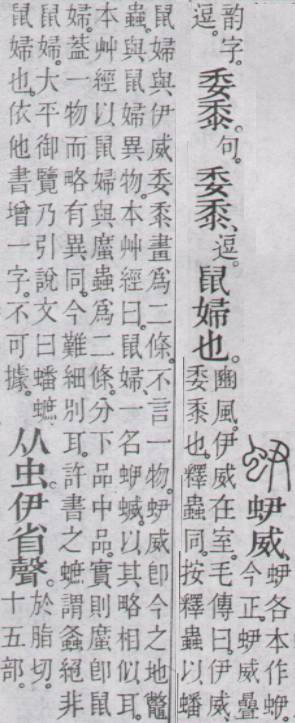 蛜威、蛜各本作蛜
今正。蛜威疊
韵字。
逗。
委黍。句。委黍、逗。鼠婦也。豳風。伊威在室。毛傳曰。伊威
委黍也。釋蟲同。按釋蟲以蟠
鼠婦與伊威委黍畫爲二條。不言一物。蛜威卽今之地鼈
蟲。與鼠婦異物。本艸經曰。鼠婦、一名蛜蝛。以其略相似耳。
本艸經以鼠婦與䗪蟲爲二條。分下品中品。實則䗪卽鼠
婦。葢一物而略有異同。今難細別耳。許書之蟅謂螽絕非
鼠婦。大平御覽乃引說文曰蟠蟅
鼠婦也。依他書增一字。不可據。
从虫。伊省聲。於脂切。
十五部。